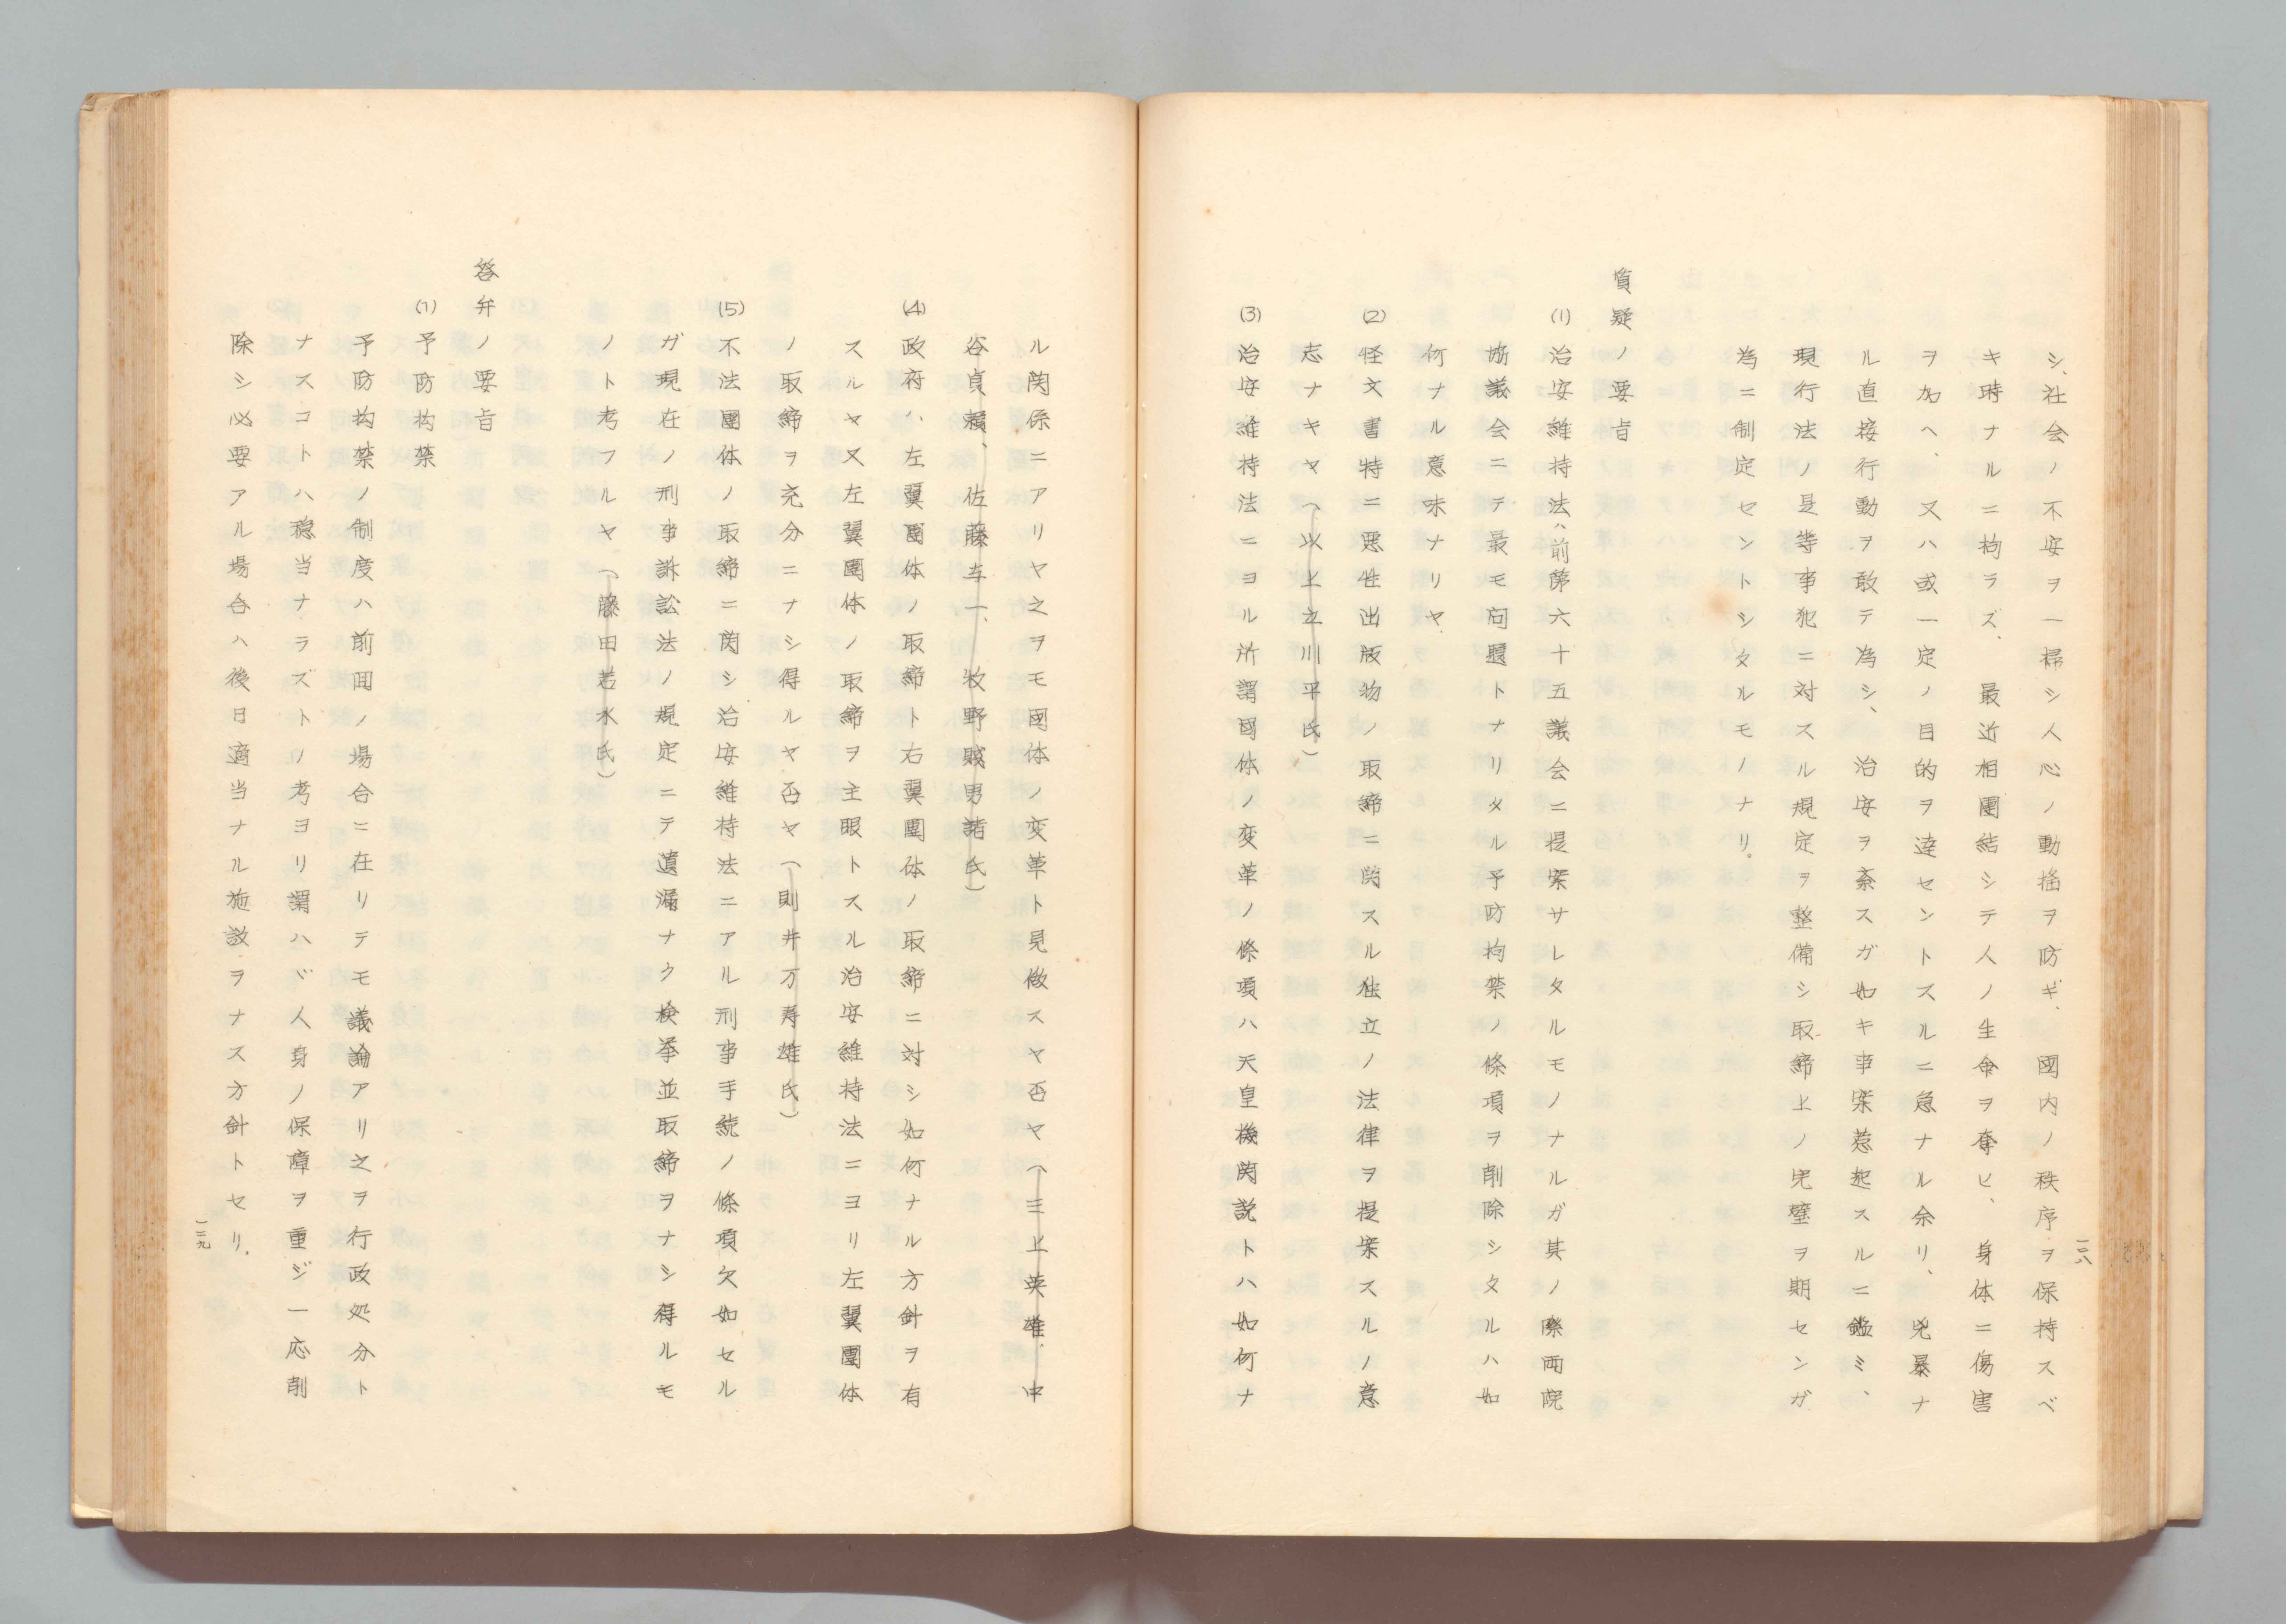 シ、社会ノ不安ヲ一掃シ人心ノ動揺ヲ防ギ、國内ノ秩序ヲ保持スベ
キ時ナルニ拘ラズ、最近相團結シテ人ノ生命ヲ奪ヒ、身体ニ傷害
ヲ加ヘ、又ハ或一定ノ目的ヲ達セントスルニ急ナル余リ、兇暴ナ
ル直接行動ヲ敢テ為シ、治安ヲ紊スガ如キ事案惹起スルニ鑑ミ、
現行法ノ是等事犯ニ対スル規定ヲ整備シ取締上ノ完璧ヲ期センガ
為ニ制定セントシタルモノナリ。
質疑ノ要旨
(1)治安維持法ハ前第六十五議会ニ提案サレタルモノナルガ其ノ際両院
協議会ニテ最モ問題トナリタル予防拘禁ノ條項ヲ削除シタルハ如
何ナル意味ナリヤ
(2)怪文書特ニ悪性出版物ノ取締ニ関スル独立ノ法律ヲ提案スルノ意
志ナキヤ(以上立川平氏)
(3)治安維持法ニヨル所謂國体ノ変革ノ條項ハ天皇機関説トハ如何ナ
一二八
ル関係ニアリヤ之ヲモ國体ノ変革ト見做スヤ否ヤ(三上英雄、中
谷貞頼、佐藤与一、牧野賤男諸氏)
(4)政府ハ、左翼團体ノ取締ト右翼團体ノ取締ニ対シ如何ナル方針ヲ有
スルヤ又左翼團体ノ取締ヲ主眼トスル治安維持法ニヨリ左翼團体
ノ取締ヲ充分ニナシ得ルヤ否ヤ(則井万寿雄氏)
(5)不法團体ノ取締ニ関シ治安維持法ニアル刑事手続ノ條項欠如セル
ガ現在ノ刑事訴訟法ノ規定ニテ遺漏ナク検挙並取締ヲナシ得ルモ
ノト考フルヤ(藤田若水氏)
答弁ノ要旨
(1)予防拘禁
予防拘禁ノ制度ハ前回ノ場合ニ在リテモ議論アリ之ヲ行政処分ト
ナスコトハ穏当ナラズトノ考ヨリ謂ハバ人身ノ保障ヲ重ジ一応削
除シ必要アル場合ハ後日適当ナル施設ヲナス方針トセリ、
一二九